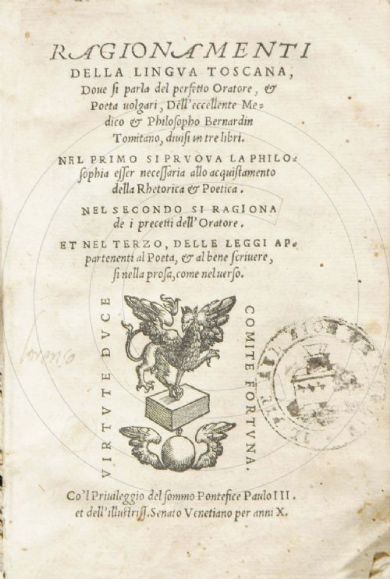 RAGIONAMENTI
DELLA LINGVA TOSCANA,
Doue si parla del perfetto Oratore, &
Poeta uolgari, Dell'eccellente Me-
dico & Philosopho Bernardin
Tomitano, diuisi in tre libri.
NEL PRIMO SI PRVOVA LA PHILO-
sophia esser necessaria allo acquistamento
della Rhetorica & Poetica.
NEL SECONDO SI RAGIONA
de i precetti dell'Oratore.
ET NEL TERZO, DELLE LEGGI AP-
partenenti al Poeta, & al bene scriuere,
si nella prosa, come nel uerso.
VIRTVTE DVCE
COMITE FORTVNA.
Co'l Priuileggio del sommo Pontefice Paulo III.
et dell'illustriss. Senato Venetiano per anni X.